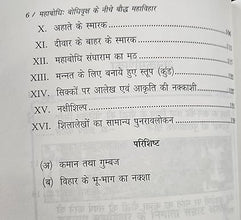 6 / महाबोधिः बोधिवृक्ष के नीचे बौद्ध महाविहार
X. अहाते के स्मारक
XI. दीवार के बाहर के स्मारक
XII. महाबोधि संघाराम का मठ
XIII. मन्नत के लिए बनाये हुए स्तूप (कुंड)
XIV. सिक्कों पर आलेख एवं आकृति की नक्काशी
XV. नक्षीशिल्प
XVI. शिलालेखों का सामान्य पुनरावलोकन
परिशिष्ट
(अ) कमान तथा गुम्बज
(ब) विहार के भू-भाग का नक्शा